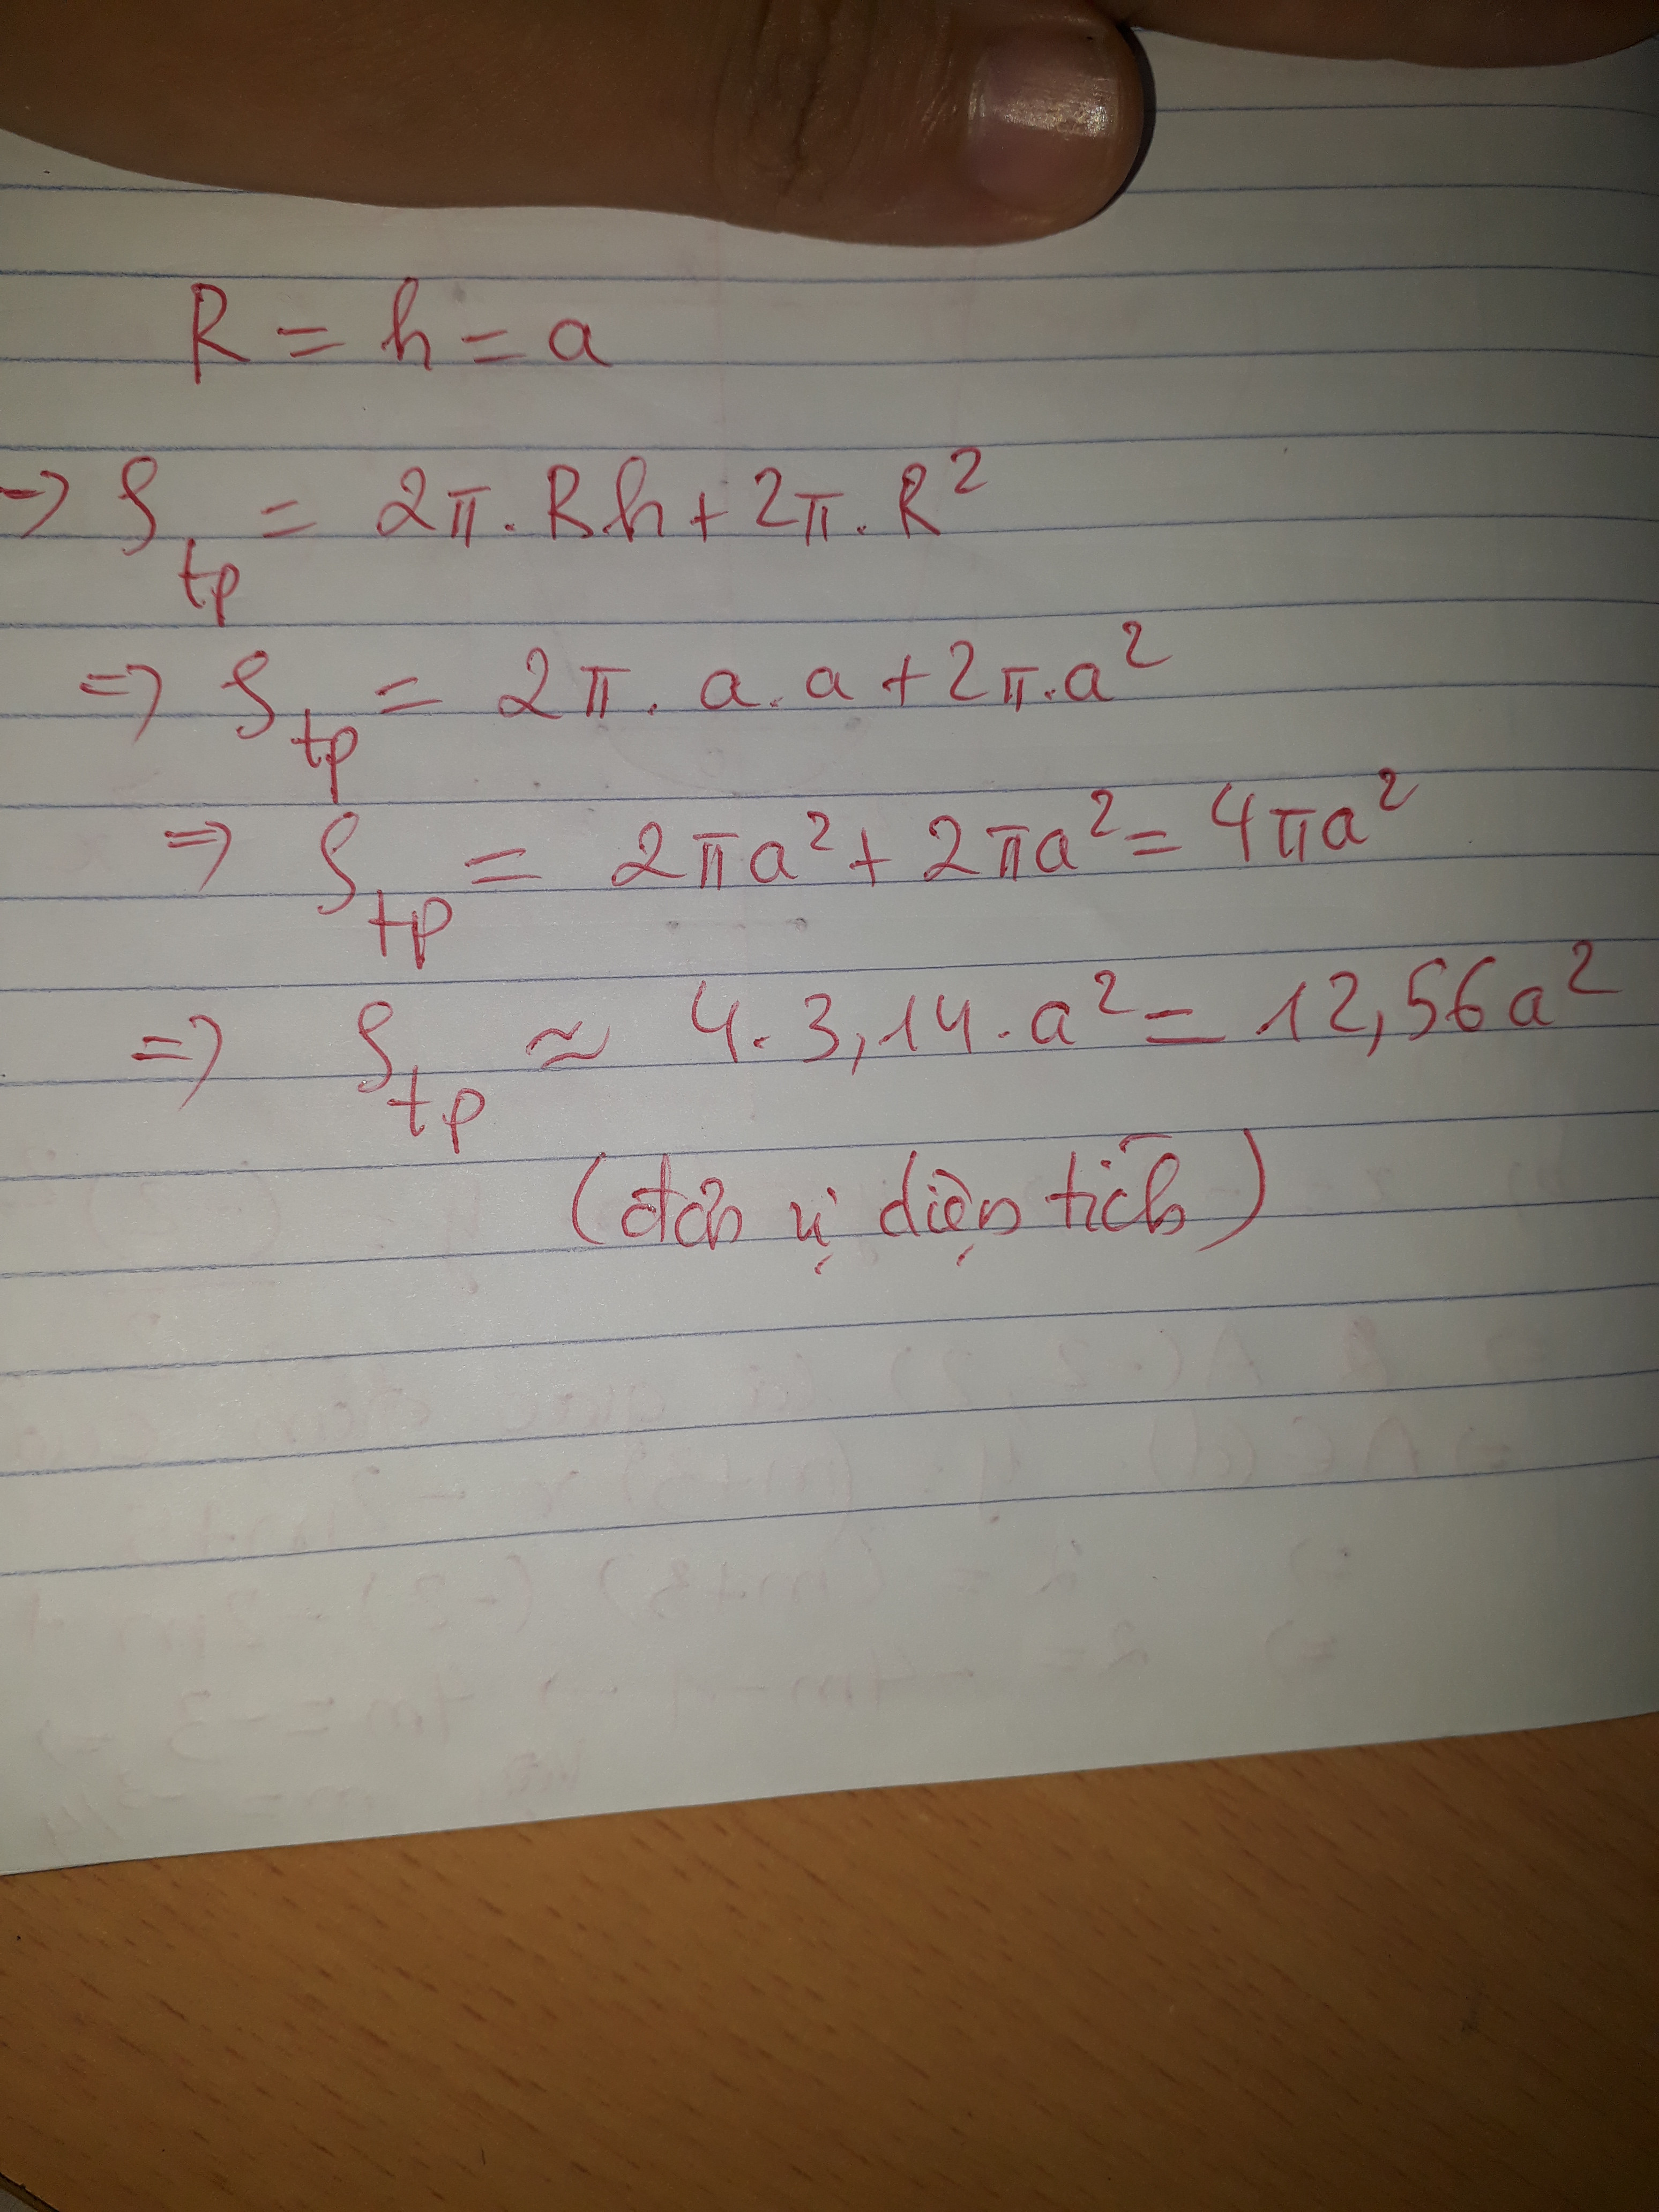 R = h = a
=> S tp = 2π. Rh + 2π. R²
=> S tp = 2π. a. a + 2π. a²
=> S tp = 2πa² + 2πa² = 4πa²
=> S tp ≈ 4. 3,14. a² = 12,56a²
(đơn vị diện tích)